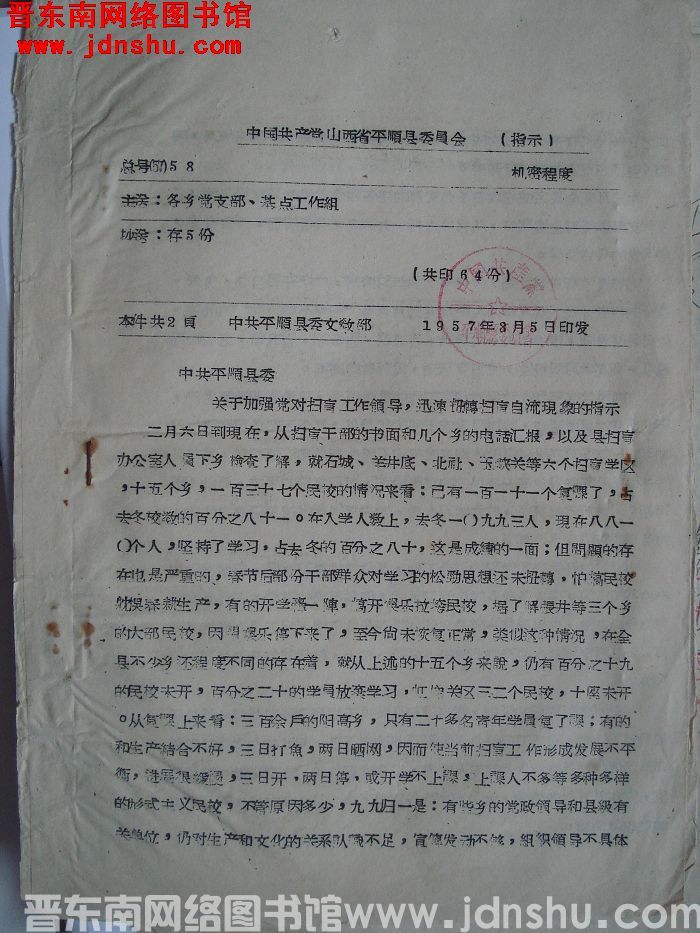 晋东南网络图书馆
www.jdnshu.com
中国共产党山西省平順县委員会 (指示)
总号(57)58 机密程度
主送:各乡党支部、基点工作組
抄送:存5份
(共印64份)
中国共产党
本件共2頁 中共平順县委文教部 1957年3月5日印发
中共平順县委
关于加强党对扫盲工作領导,迅速扭轉扫盲自流現象的指示
二月六日到現在,从扫盲干部的书面和几个乡的电話汇报,以及县扫盲
办公室人員下乡檢查了解,就石城、羊井底、北社、玉峽关等六个扫盲学区
,十五个乡,一百三十七个民校的情况来看:已有一百一十一个复課了,占
去冬校数的百分之八十一。在入学人数上,去冬一〇九九三人,現在八八一
〇个人,坚持了学习,占去冬的百分之八十,这是成績的一面;但問題的存
在也是严重的,春节后部份干部群众对学习的松勁思想还未扭轉,怕搞民校
就誤春耕生产,有的开学一陣,搞开娱乐拉垮民校,据了解張井等三个乡
的大部民校,因鬧娱乐停下来了,至今尚未恢复正常,类似这种情况,在全
县不少乡还程度不同的存在着,就从上述的十五个乡来說,仍有百分之十九
的民校未开,百分之二十的学員放弃学习,虹梯关区三二个民校,十座未开
。从复課上来看:三百余戶的阳高乡,只有二十多名青年学員复了課;有的
和生产結合不好,三日打魚,两日晒网,因而使当前扫盲工作形成发展不平
衡,进展很緩慢,三日开,两日停,或开学不上課,上課人不多等多种多样
的形式主义民校,不管原因多少,九九归一是:有些乡的党政領导和县級有
关单位,仍对生产和文化的关系认識不足,宣傳发动不够,組織領导不具体
晋东南网络图书馆www.jdnshu.com